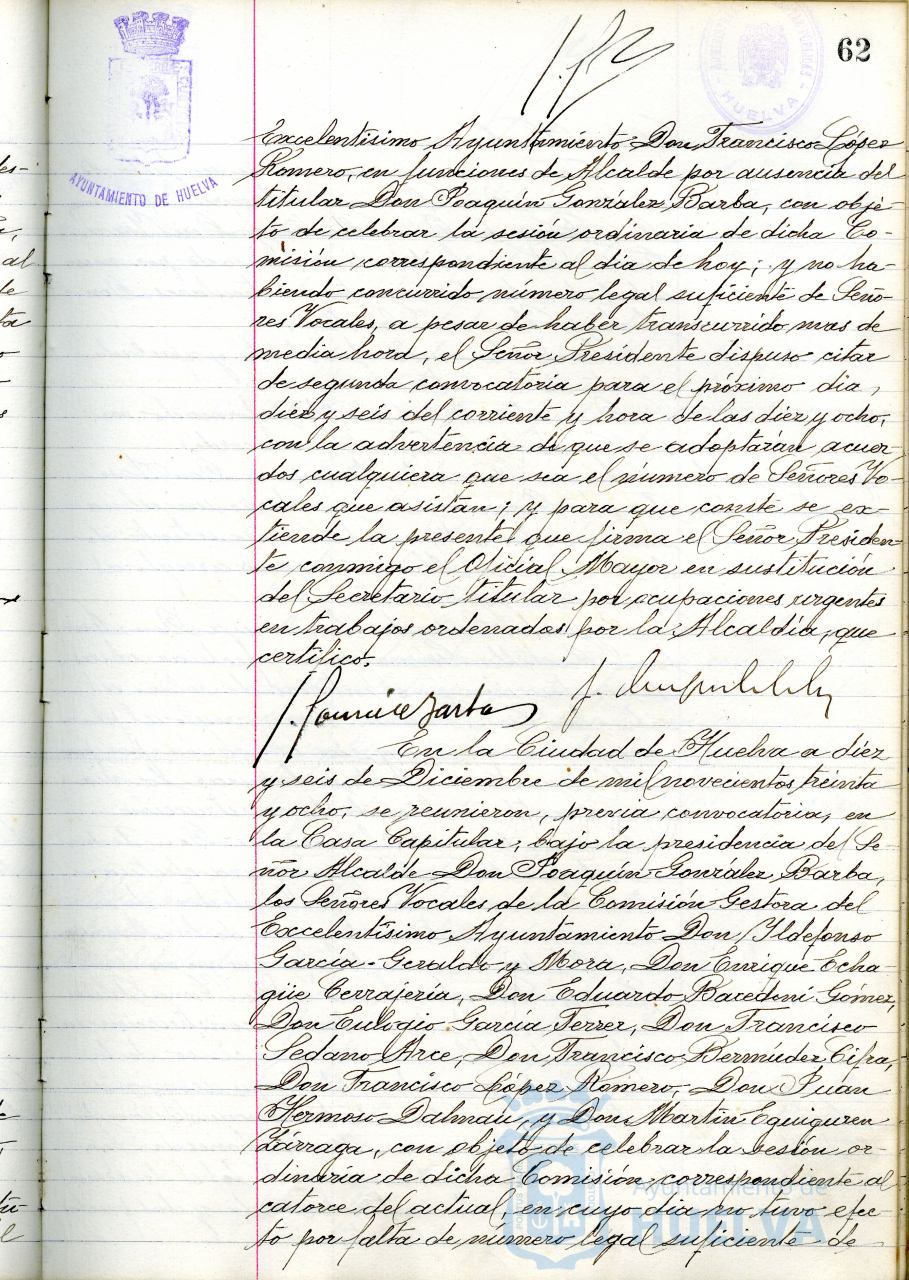 62
AYUNTAMIENTO DE HUELVA
HUELVA
Excelentísimo Ayuntamiento Don Francisco López
Romero, en funciones de Alcalde por ausencia del
titular Don Joaquín González Barba, con obje-
to de celebrar la sesión ordinaria de dicha Co-
misión correspondiente al día de hoy; y no ha-
biendo concurrido número legal suficiente de Seño-
res Vocales, a pesar de haber transcurrido mas de
media hora, el Señor Presidente dispuso citar
de segunda convocatoria para el próximo dia,
diez y seis del corriente y hora de las diez y ocho,
con la advertencia de que se adoptarán acuer-
dos cualquiera que sea el número de Señores Vo-
cales que asistan; y para que conste se ex-
tiende la presente que firma el Señor Presiden-
te conmigo el Oficial Mayor en sustitución
del Secretario titular por ocupaciones urgentes
en trabajos ordenados por la Alcaldía, que
certifico.
En la Ciudad de Huelva a diez
y seis de Diciembre de mil novecientos treinta
y ocho, se reunieron, previa convocatoria, en
la Casa Capitular, bajo la presidencia del Se-
ñor Alcalde Don Joaquín González Barba,
los Señores Vocales de la Comisión Gestora del
Excelentísimo Ayuntamiento Don Ildefonso
García-Geraldo y Mora, Don Enrique Echa-
güe Cerrajería, Don Eduardo Bacedoni Gómez,
Don Eulogio García Ferrer, Don Francisco
Sedano Arce, Don Francisco Bermúdez Cifra,
Don Francisco López Romero, Don Juan
Hermoso Dalmau, y Don Martín Eguiguren
Zárraga, con objeto de celebrar la sesión or-
dinaria de dicha Comisión, correspondiente al
catorce del actual, en cuyo dia no tuvo efec-
to por falta de número legal suficiente de
Ayuntamiento de
HUELVA